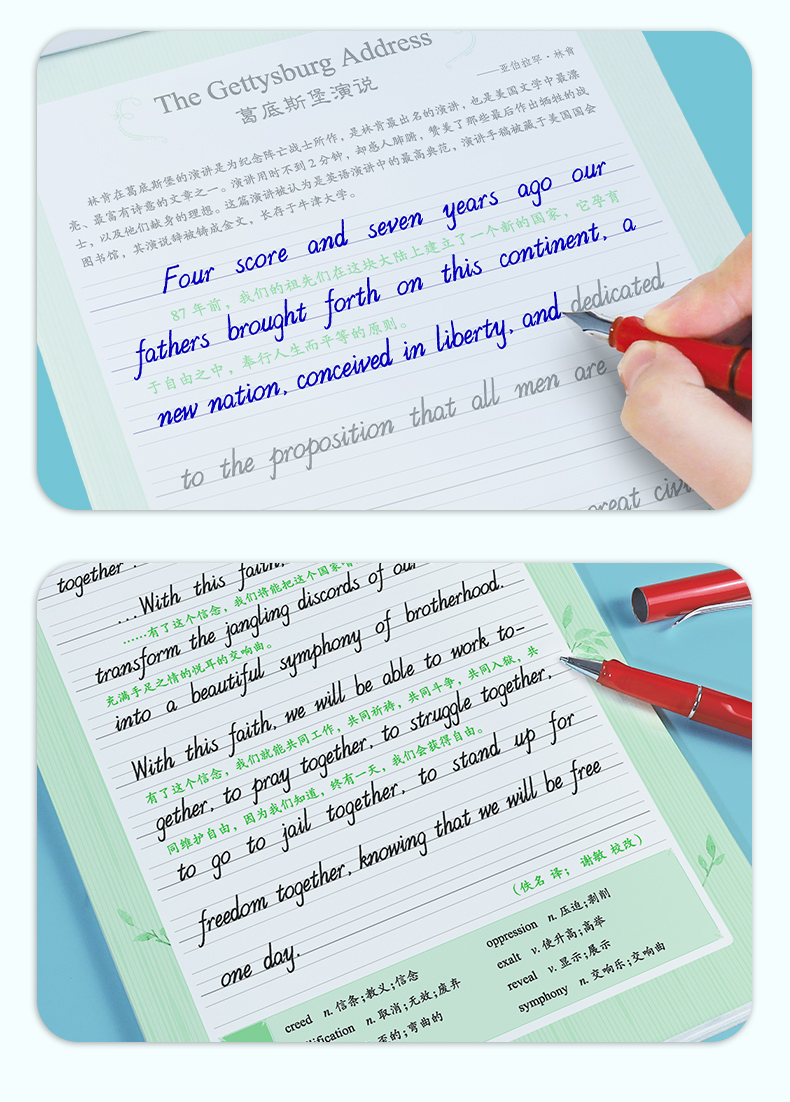 The Gettysburg Address
葛底斯堡演说
——亚伯拉罕·林肯
林肯在葛底斯堡的演讲是为纪念阵亡战士所作，是林肯最出名的演讲，也是美国文学中最漂
亮、最富有诗意的文章之一。演讲用时不到2分钟，却感人肺腑，赞美了那些最后作出牺牲的战
士，以及他们献身的理想。这篇演讲被认为是英语演讲中的最高典范，演讲手稿被藏于美国国会
图书馆，其演说辞被铸成金文，长存于牛津大学。
Four score and seven years ago our
87年前，我们的祖先们在这块大陆上建立了一个新的国家，它孕育
fathers brought forth on this continent, a
于自由之中，奉行人生而平等的原则。
new nation, conceived in liberty, and dedicated
to the proposition that all men are
great
together.
...With this faith,
······有了这个信念，我们将能把这个国家
transform the jangling discords of our
充满手足之情的悦耳的交响曲。
into a beautiful symphony of brotherhood.
With this faith, we will be able to work to-
有了这个信念，我们就能共同工作，共同祈祷，共同斗争，共同入狱，共
gether, to pray together, to struggle together,
同维护自由，因为我们知道，终有一天，我们会获得自由。
to go to jail together, to stand up for
freedom together, knowing that we will be free
one day.
（佚名 译；谢敏 校改）
creed n.信条;教义;信念
n.取消;无效;废弃
弯曲的
oppression n.压迫;剥削
exalt v.使升高;高举
reveal v.显示;展示
symphony n.交响乐;交响曲